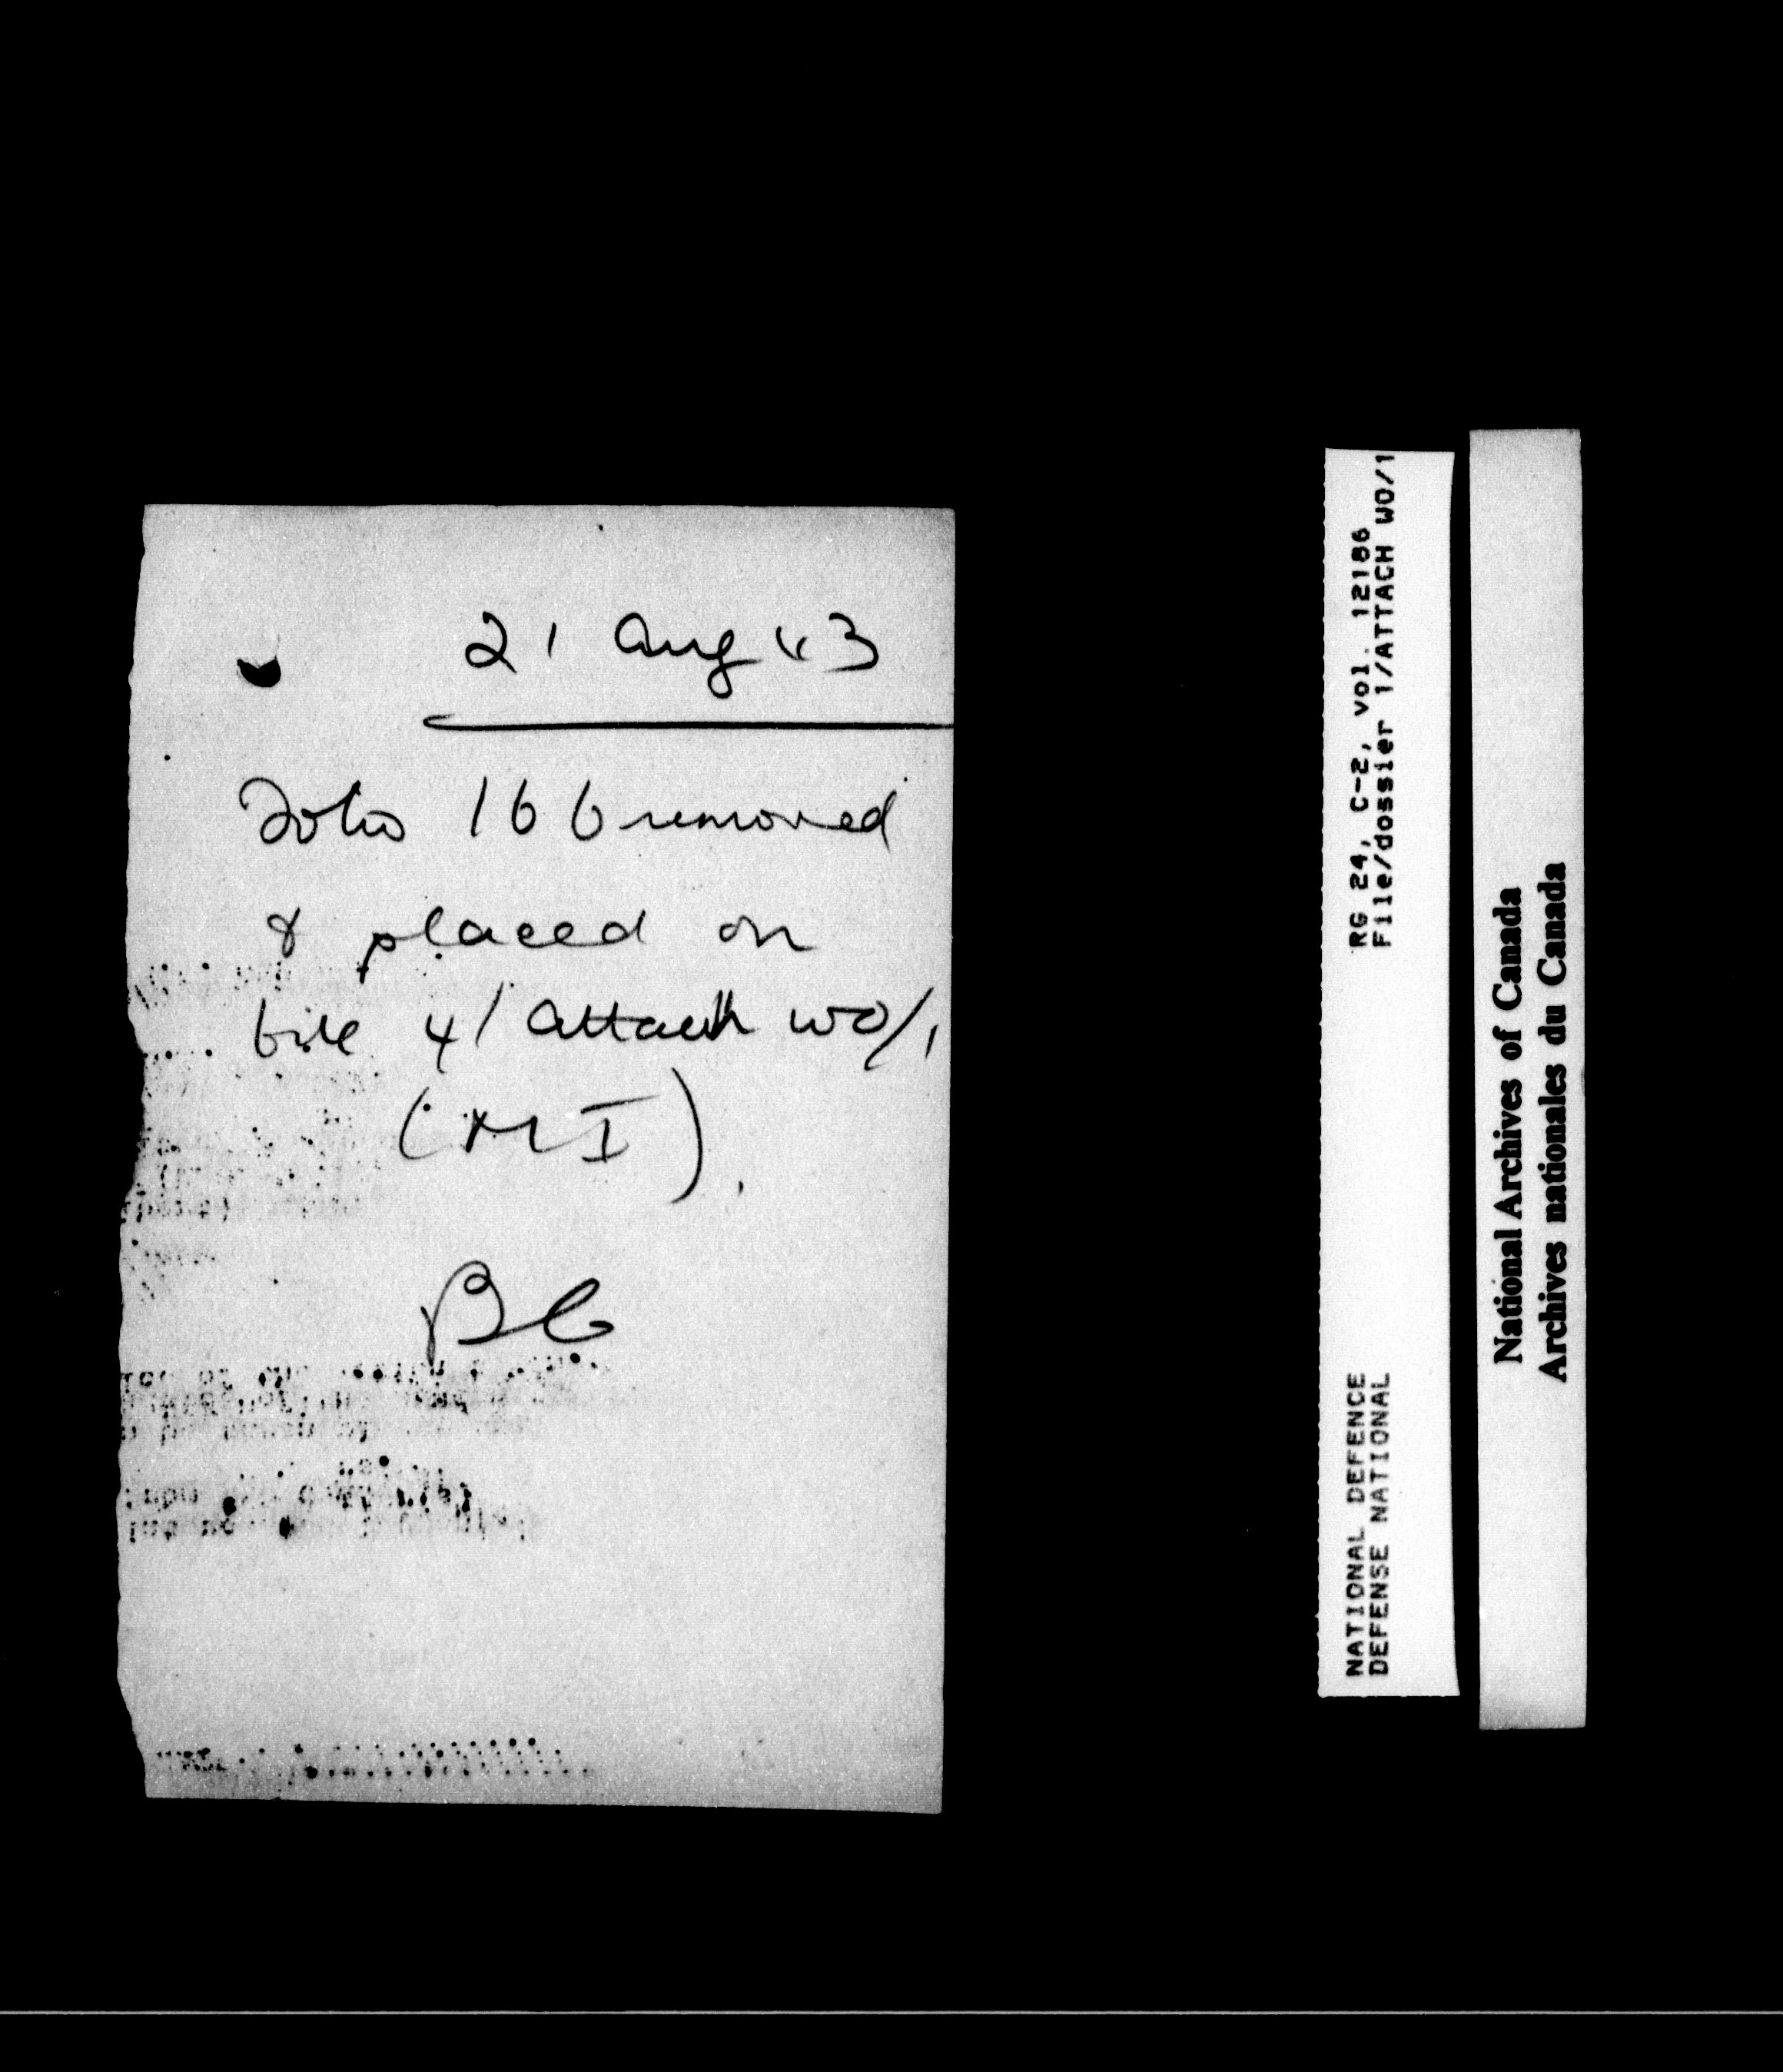 21 Aug 43
Folio 166 removed
& placed on
file 4/Attach WO/1
(MI).
BC
RG 24, C-2, vol. 12186
File/dossier 1/ATTACH WO/1
NATIONAL DEFENCE
DEFENSE NATIONAL
National Archives of Canada
Archives nationales du Canada